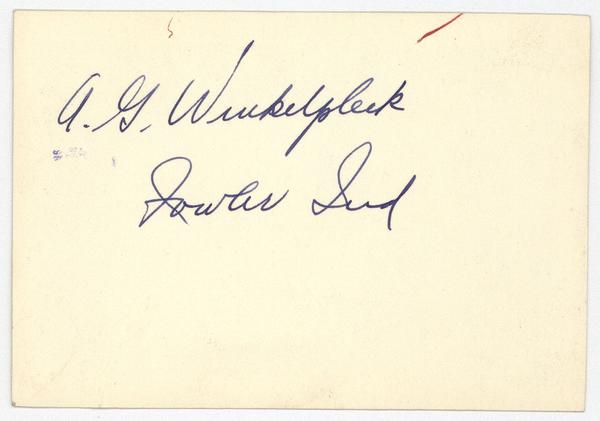 A. G. Winkelpleck
Fowler Ind